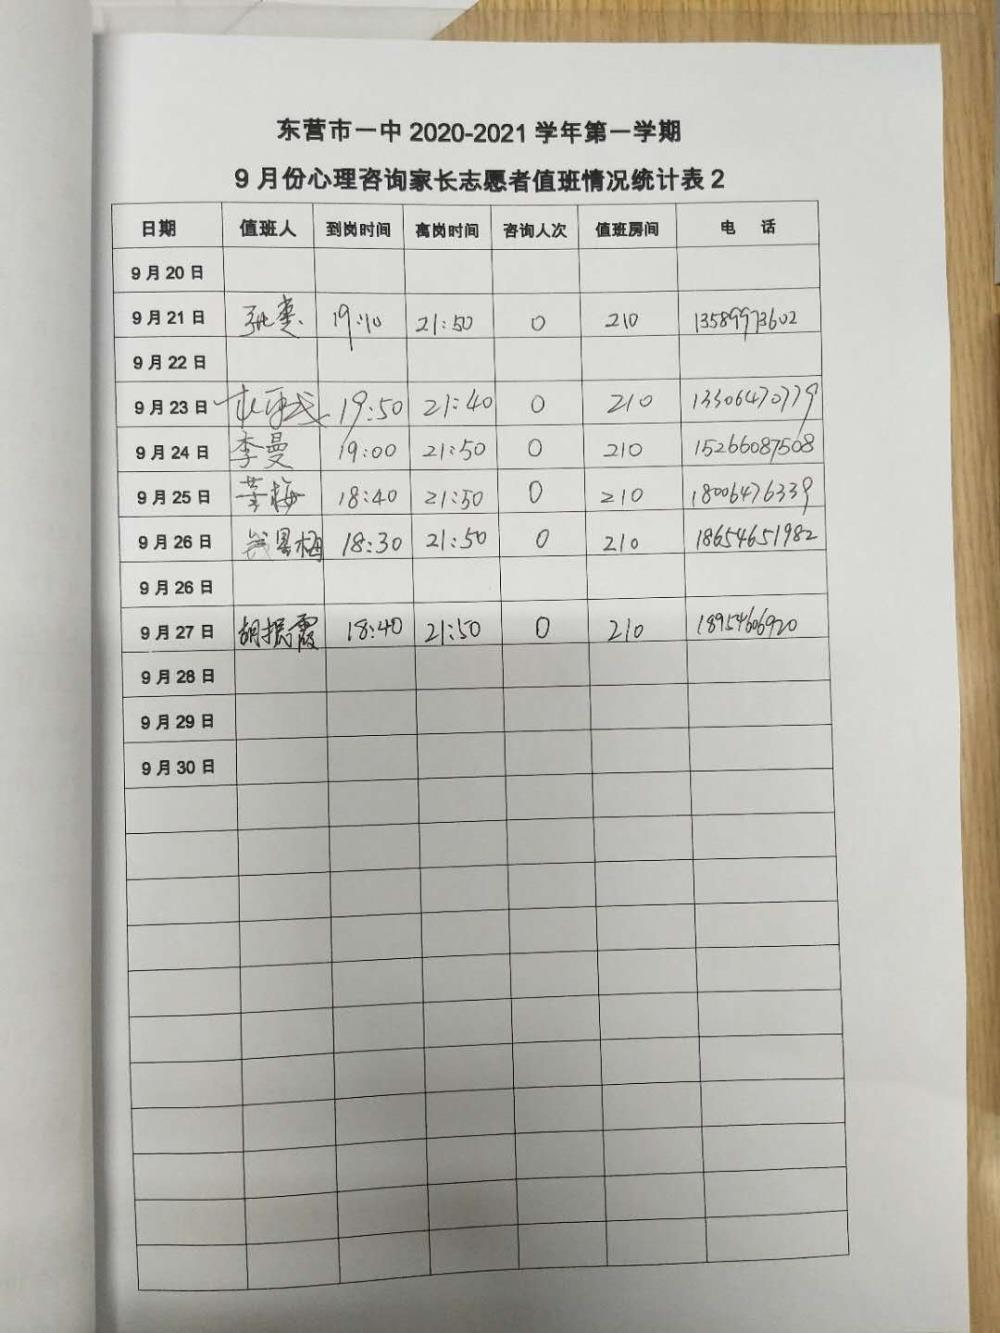 东营市一中 2020-2021 学年第一学期
9 月份心理咨询家长志愿者值班情况统计表 2
日期 值班人 到岗时间 离岗时间 咨询人次 值班房间 电 话
9 月 20 日
9 月 21 日 19:10 21:50 0 210 13589973602
9 月 22 日
9 月 23 日 19:50 21:40 0 210 13306470779
9 月 24 日 李曼 19:00 21:50 0 210 15266087508
9 月 25 日 董梅 18:40 21:50 0 210 18006476339
9 月 26 日 18:30 21:50 0 210 18654651982
9 月 26 日
9 月 27 日 胡振霞 18:40 21:50 0 210 18954606920
9 月 28 日
9 月 29 日
9 月 30 日